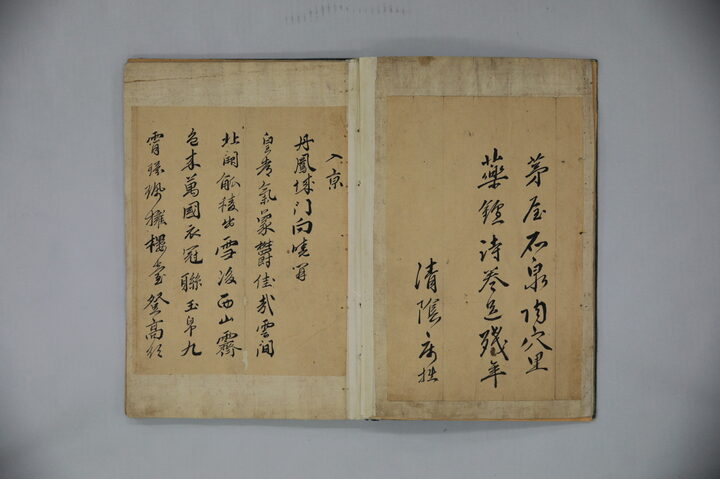 茅屋石泉陶穴里
藥鑪詩卷送殘年
清陰病拙
入京
丹鳳城門向曉開
皇都氣象鬱佳哉雲間
北闕觚稜出雪後西山霽
色來萬國衣冠聯玉帛九
霄環珮擁樓臺登高